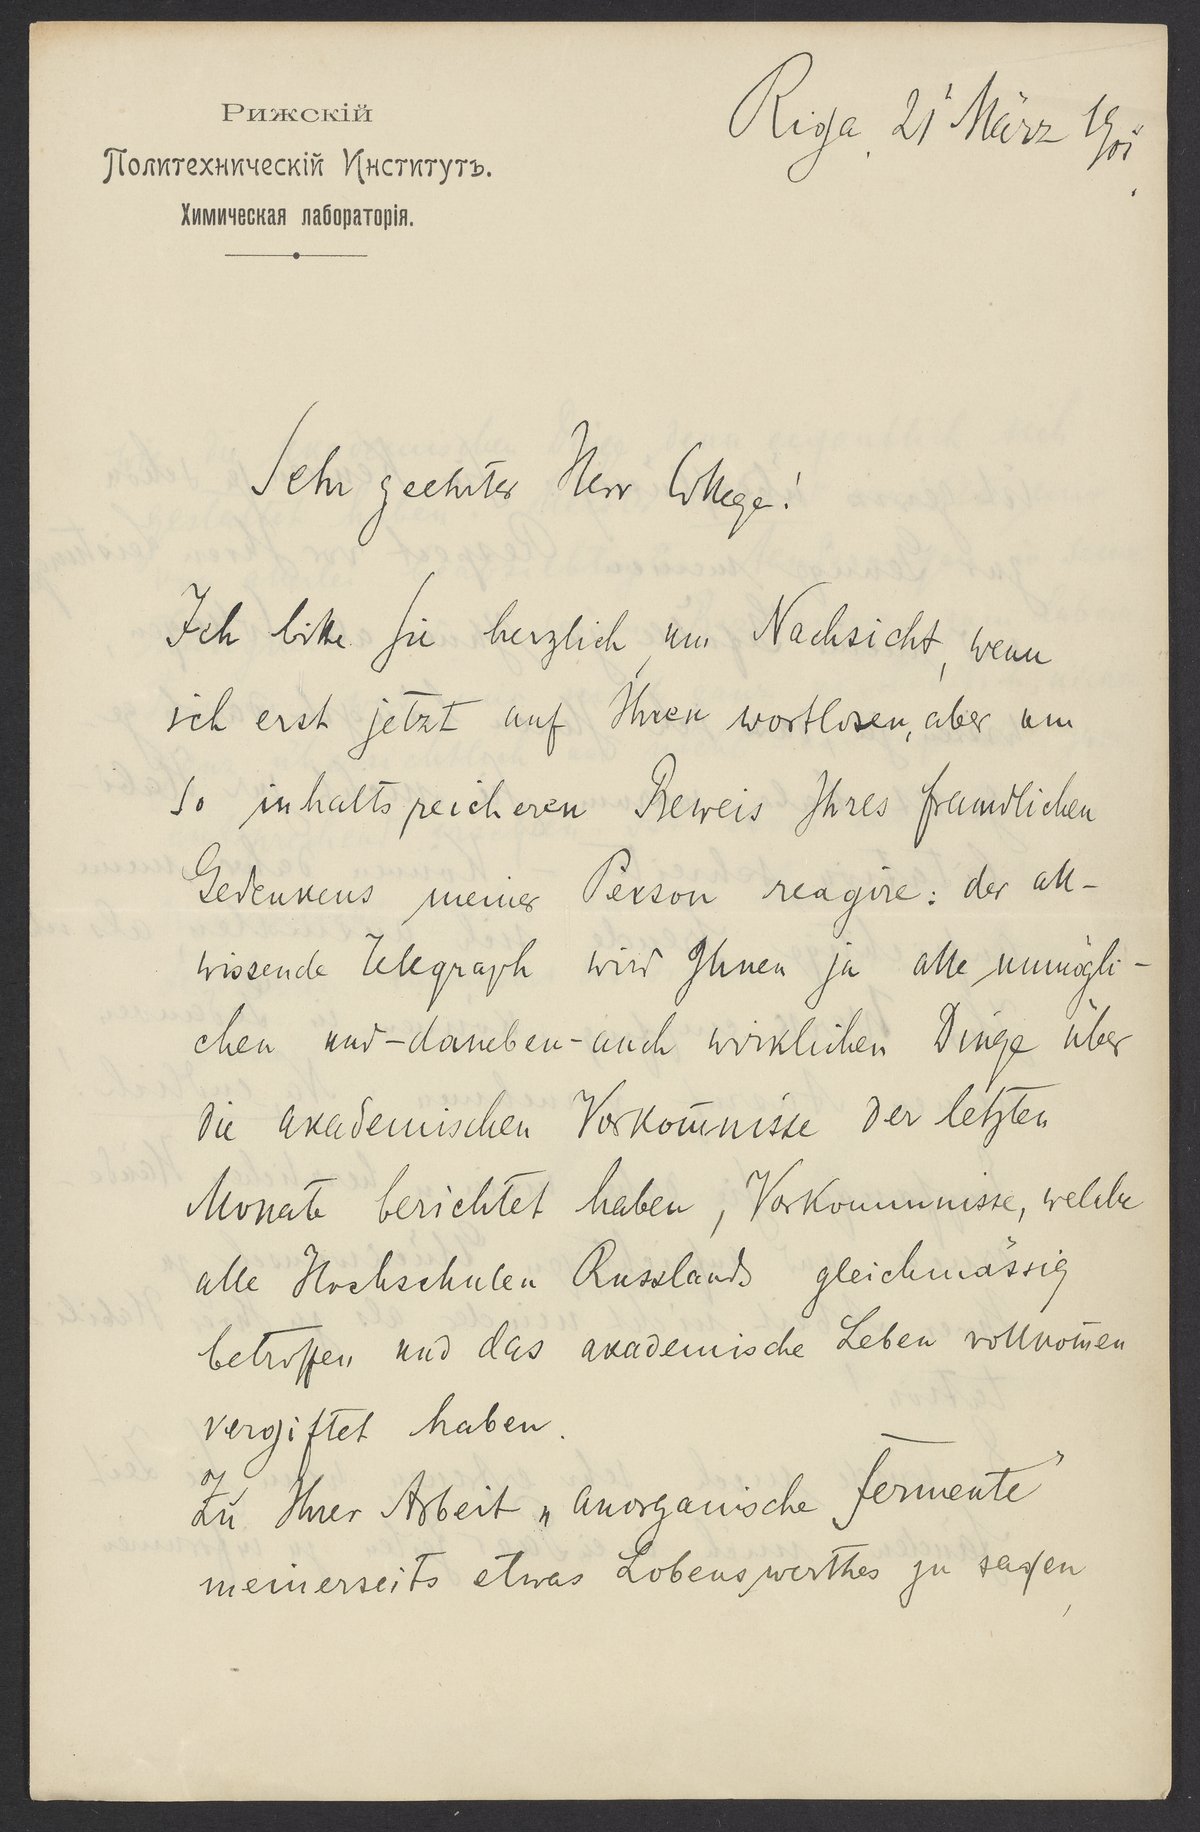 Рижскій
Политехническій Институтъ.
Химическая лабораторія.
Riga, 21 März 1901.
Sehr geehrter Herr College!
Ich bitte Sie herzlich um Nachsicht, wenn
ich erst jetzt auf Ihren wortlosen, aber um
so inhaltsreicheren Beweis Ihres freundlichen
Gedenkens meiner Person reagire: der all-
wissende Telegraph wird Ihnen ja alle unmögli-
chen und-daneben-auch wirklichen Dinge über
die akademischen Vorkom̅nisse der letzten
Monate berichtet haben, Vorkommnisse, welche
alle Hochschulen Russlands gleichmässig
betroffen und das akademische Leben vollkom̅en
vergiftet haben.
Zu Ihrer Arbeit „anorganische Fermente"
meinerseits etwas Lobenswerthes zu sagen,